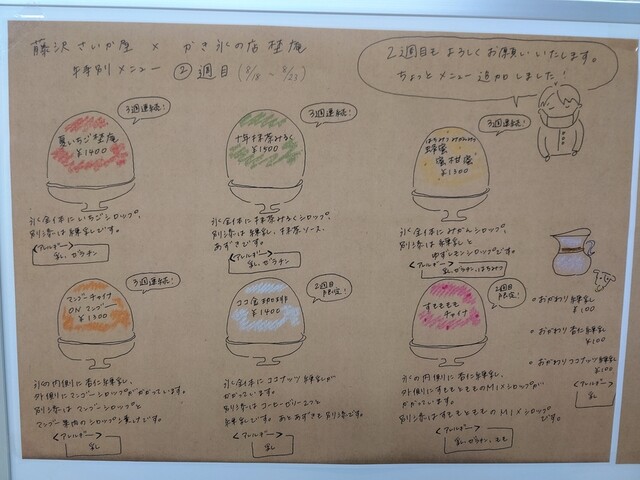 藤沢さいか屋 × かき氷の店 埜庵
特別メニュー ②週目(8/18 ~ 8/23)
2週目もよろしくお願いいたします。
ちょっとメニュー追加しました!
3週連続!
夏いちご埜庵
¥1400
氷全体にいちごシロップ、
別添は練乳です。
<アレルギー>
乳、ゼラチン
3週連続!
十年抹茶みるく
¥1500
氷全体に抹茶みるくシロップ、
別添は練乳、抹茶ソース、
あずきです。
<アレルギー>
乳、ゼラチン
3週連続!
はちみつみかんみつ
蜂蜜
蜜柑蜜
¥1300
氷全体にみかんシロップ。
別添は練乳と
ゆずレモンシロップです。
<アレルギー>
乳、ゼラチン、はちみつ
3週連続!
マンゴーチャイナ
ONマンゴー
¥1500
氷の内側に杏仁練乳、
外側にマンゴーシロップがかかっています。
別添はマンゴーシロップと
マンゴー果肉のシロップ
です。
<アレルギー>
乳
2週目
限定!
ココ
¥1400
氷全体にココナッツ練乳が
かかっています。
別添はコーヒーゼリーと
練乳です。あとあずきも別添です。
<アレルギー>
乳
2週目
限定!
すももももも
チャイナ
氷の内側に杏仁練乳、
外側にすももともものMIXシロップが
かかっています。
別添はすももともものMIXシロップ
です。
<アレルギー>
乳、ゼラチン、もも
○おかわり練乳
¥100
○おかわり杏仁練乳
¥100
○おかわりココナッツ練乳
¥100
<アレルギー>
乳